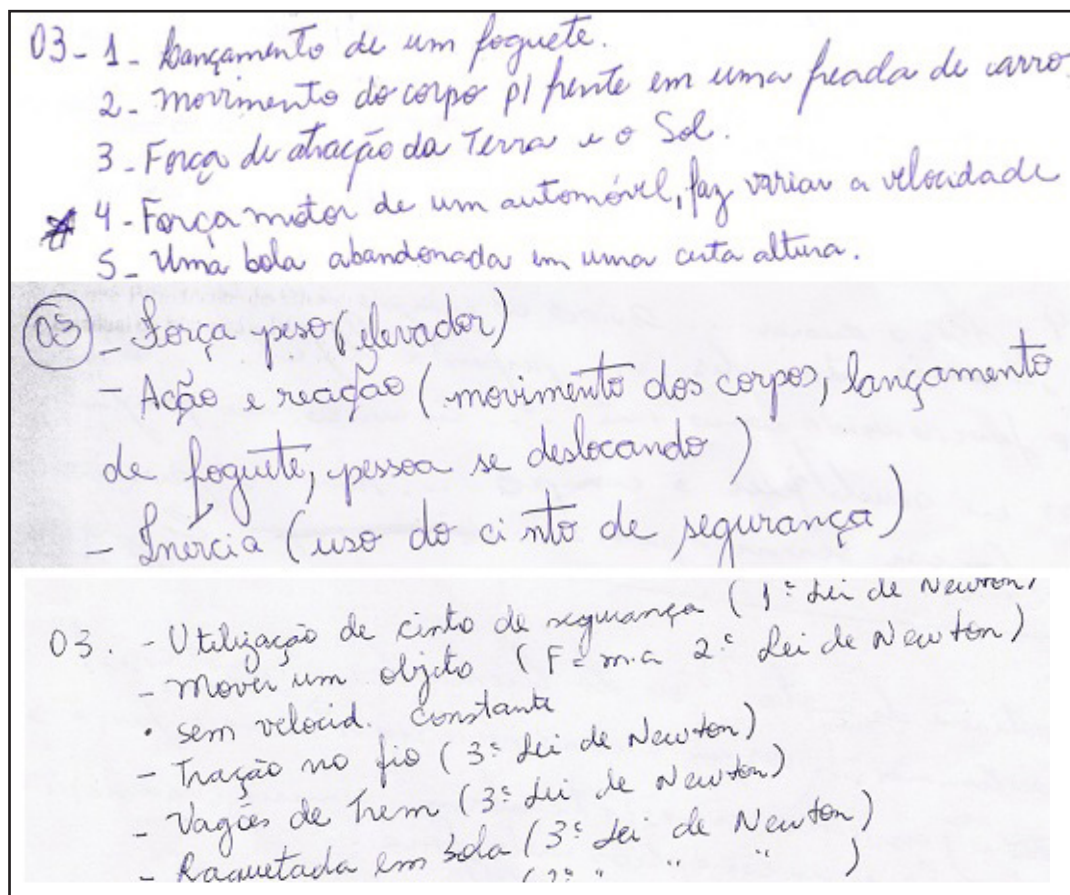 03- 1- Lançamento de um foguete.
2- movimento do corpo p/ frente em uma freada de carro.
3- Força de atração da Terra e o Sol.
4- Força motor de um automóvel, faz variar a velocidade
5- Uma bola abandonada em uma certa altura.
03 - Força peso (elevador)
- Ação e reação (movimento dos corpos, lançamento
de foguete, pessoa se deslocando)
- Inércia (uso do cinto de segurança)
03. - Utilização de cinto de segurança (1ª Lei de Newton)
- Mover um objeto (F = m.a 2ª Lei de Newton)
• sem velocid. constante
- Tração no fio (3ª Lei de Newton)
- Vagões de Trem (3ª Lei de Newton)
- Raquetada em bola (3ª Lei de Newton)
" " )